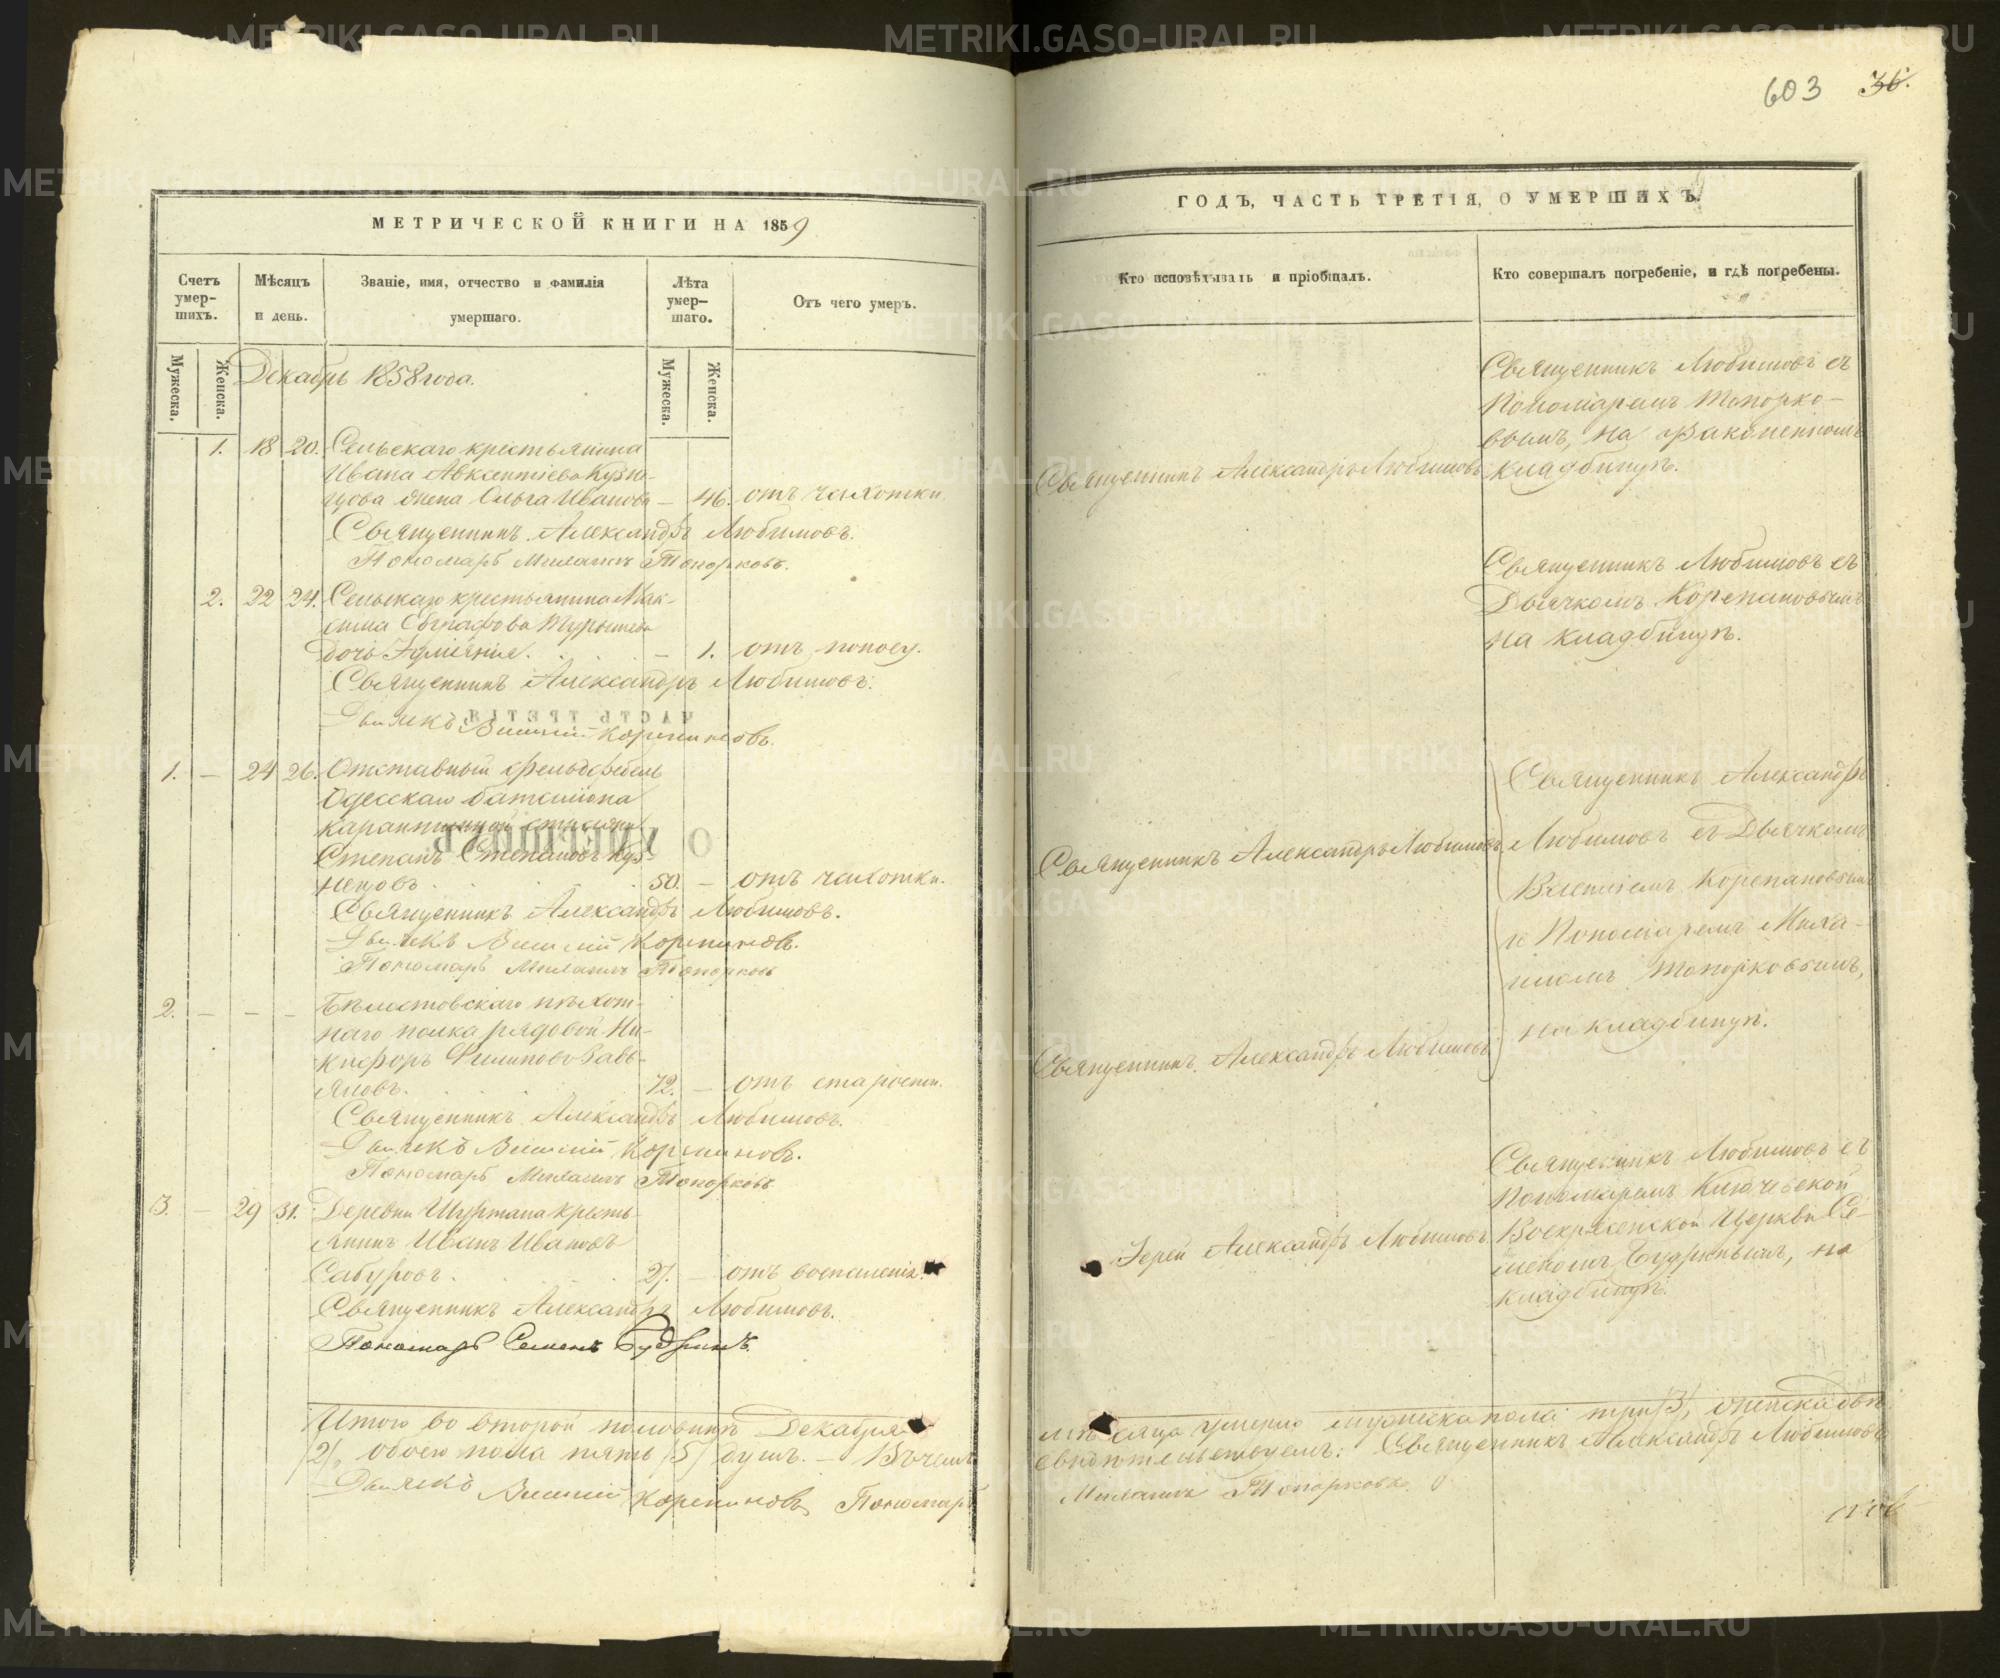 603 36.
МЕТРИЧЕСКОЙ КНИГИ НА 1859
Счетъ умер-шихъ.
Мужеска.
Женска.
Мѣсяцъ и день.
Званіе, имя, отчество и фамилія умершаго.
Лѣта умер-шаго.
Мужеска.
Женска.
Отъ чего умеръ.
Декабрь 1858 года.
1. 18 20. Сельскаго крестьянина
Ивана Авксентіева Кузне-
цова жена Ольга Иванова — 46. отъ чахотки.
Священникъ Александръ Любимовъ.
Пономарь Топорковъ.
2. 22 24. Сельскаго крестьянина Мак-
сима Евграфова
дочь — 1. отъ поносу.
Священникъ Александръ Любимовъ.
Дьячекъ Корепановъ.
1. — 24 26. Отставный фельдфебель
Одесскаго баталіона
карантинной стражи
Степанъ Степановъ Куз-
нецовъ. 50. — отъ чахотки.
Священникъ Александръ Любимовъ.
Дьячекъ Корепановъ.
Пономарь Топорковъ
2. — — — Бѣлостовскаго пѣхот-
наго полка рядовой Ни-
кифоръ Филиповъ Завь-
яловъ. 72. — отъ старости.
Священникъ Александръ Любимовъ.
Дьячекъ Корепановъ.
Пономарь Топорковъ
3. — 29 31. Деревни Шуртана кресть-
янинъ Иванъ Ивановъ
Сабуровъ. 27. — отъ воспаленія.
Священникъ Александръ Любимовъ.
Пономарь Семенъ Будринъ.
Итого во второй половинѣ Декабря
/2/, обоего пола пять /5/ душъ. — Въ чемъ
Дьячекъ Корепановъ, Пономарь
ГОДЪ, ЧАСТЬ ТРЕТІЯ, О УМЕРШИХЪ.
Кто исповѣдывалъ и пріобщалъ.
Кто совершалъ погребеніе, и гдѣ погребены.
Священникъ Александръ Любимовъ
Священникъ Любимовъ съ
Пономаремъ Топорко-
вымъ, на
кладбищѣ.
Священникъ Любимовъ съ
Дьячкомъ Корепановымъ
на кладбищѣ.
Священникъ Александръ Любимовъ
Священникъ Александръ
Любимовъ съ Дьячкомъ
Корепановымъ
и Пономаремъ
Топорковымъ,
на кладбищѣ.
Священникъ Александръ Любимовъ
Іерей Александръ Любимовъ
Священникъ Любимовъ съ
Пономаремъ Ключевской
Воскресенской Церкви Се-
меномъ Будринымъ, на
кладбищѣ.
мѣсяца умерло мужеска пола три /3/, женска двѣ
свидѣтельствуемъ: Священникъ Александръ Любимовъ
Топорковъ
METRIKI.GASO-URAL.RU